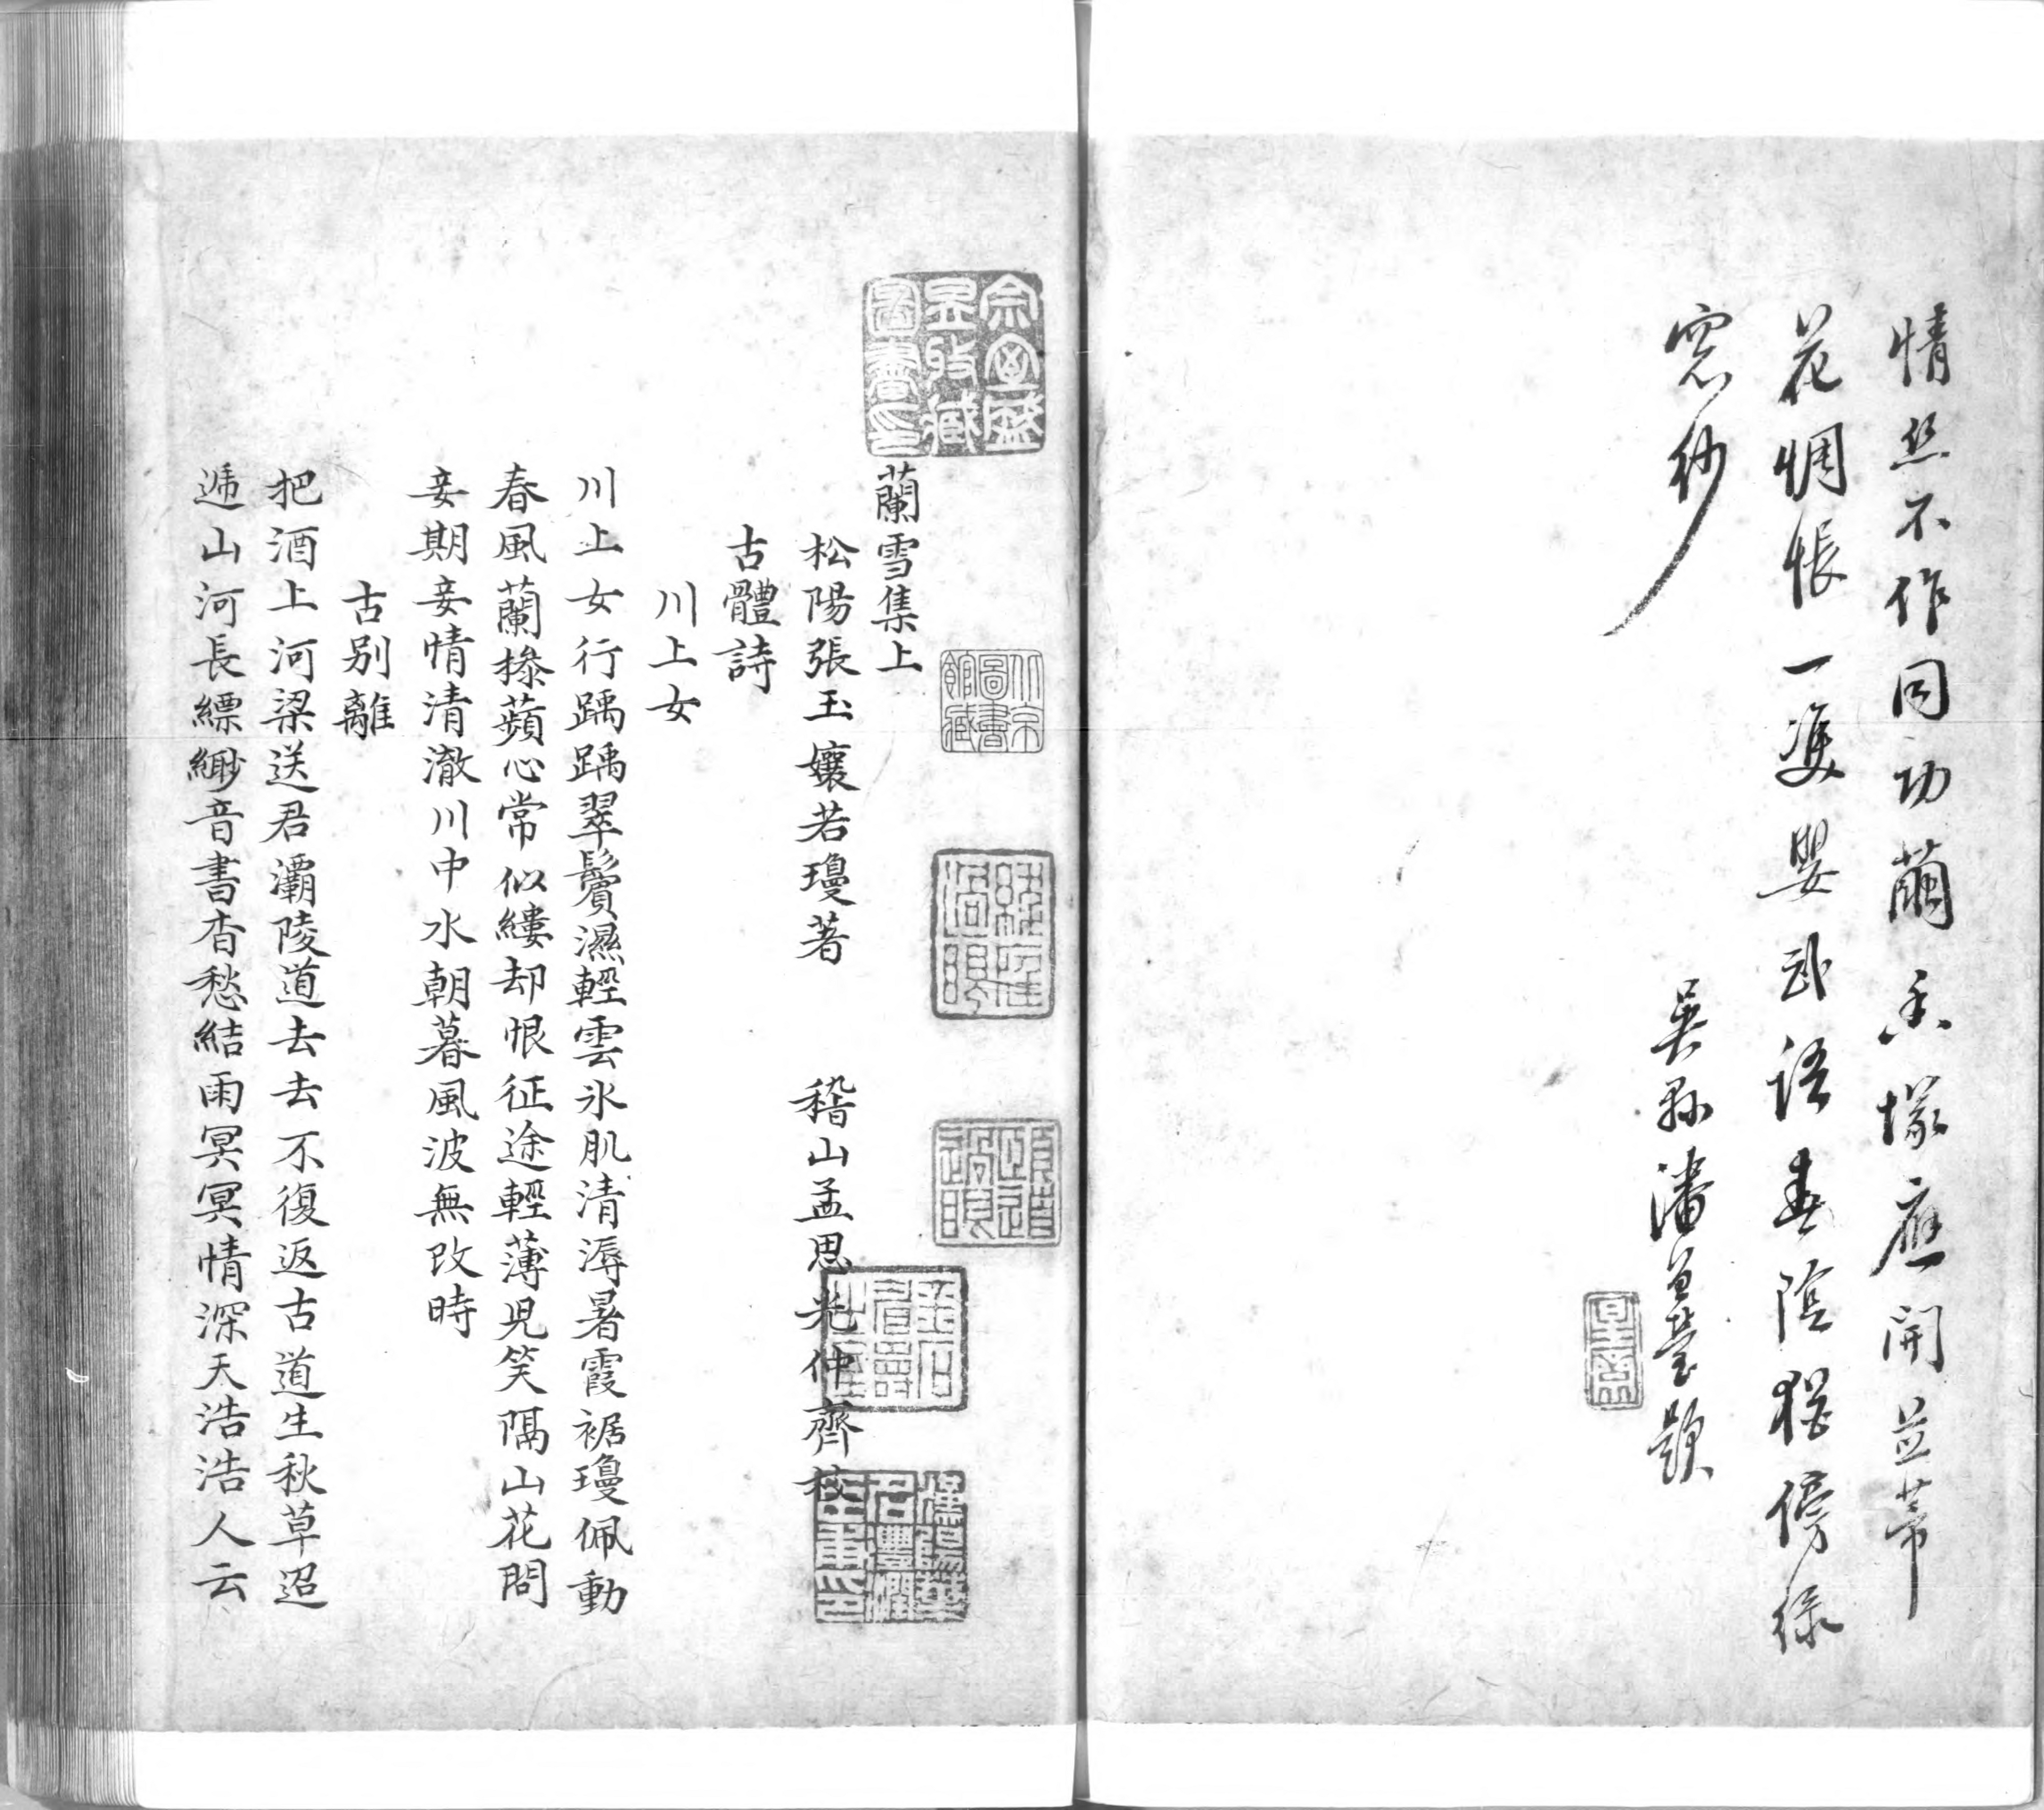 情絲不作同功繭香塚應開並蒂
花惆悵一雙嬰武語春陰猶傍綠
窓紗
吳縣潘曾瑩題
蘭雪集上
松陽張玉孃若瓊著 稽山孟思光仲齊校
古體詩
川上女
川上女行踽踽翠鬢濕輕雲氷肌清溽暑霞裾瓊佩動
春風蘭摻蘋心常似縷却恨征途輕薄兒笑隔山花問
妾期妾情清澈川中水朝暮風波無改時
古別離
把酒上河梁送君灞陵道去去不復返古道生秋草迢
遞山河長縹緲音書杳愁結雨冥冥情深天浩浩人云
宗室盛
昱收藏
圖書印
北京
圖書
館藏